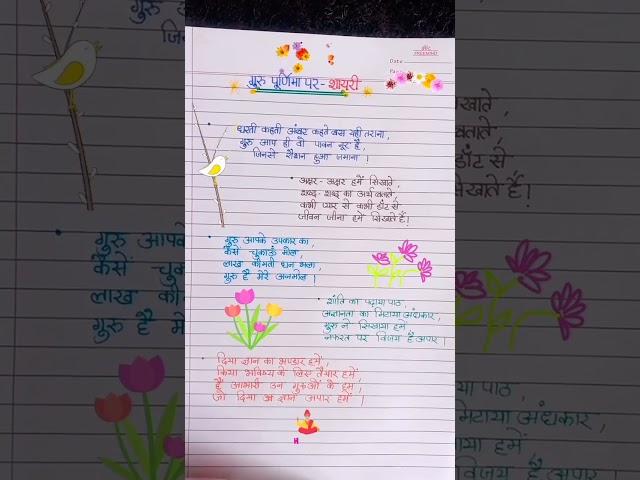 Date
गुरु पूर्णिमा पर - शायरी
धरती कहती अंबर कहते बस यही तराना,
गुरु आप ही वो पावन नूर है,
जिनसे रौशन हुआ जमाना ।
अक्षर - अक्षर हमें सिखाते,
शब्द - शब्द का अर्थ बताते,
कभी प्यार से कभी डाँट से
जीवन जीना हमें सिखाते हैं।
गुरु आपके उपकार का,
कैसे चुकाऊँ मोल,
लाख कीमती धन भला,
गुरु है मेरे अनमोल ।
शांति का पढ़ाया पाठ,
अज्ञानता का मिटाया अंधकार,
गुरु ने सिखाया हमें
नफरत पर विजय है अपार ।
दिया ज्ञान का भण्डार हमें,
किया भविष्य के लिए तैयार हमें
हैं आभारी उन गुरुओं के हम,
जो दिया ज्ञान अपार हमें ।